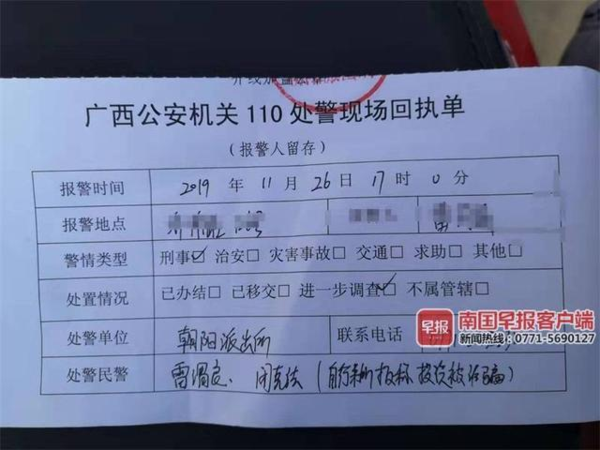 广西公安机关110处警现场回执单
(报警人留存)
报警时间 2019年11月26日17时0分
报警地点
警情类型 刑事☑ 治安□ 灾害事故□ 交通□ 求助□ 其他□
处置情况 已办结□ 已移交□ 进一步调查☑ 不属管辖□
处警单位 朝阳派出所 联系电话
早报 南国早报客户端
新闻热线:0771-5690127
处警民警 投资被诈骗)